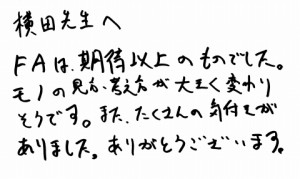 横田先生へ
FAは、期待以上のものでした。
モノの見方・考え方が大きく変わり
そうです。また、たくさんの気付きが
ありました。ありがとうございます。